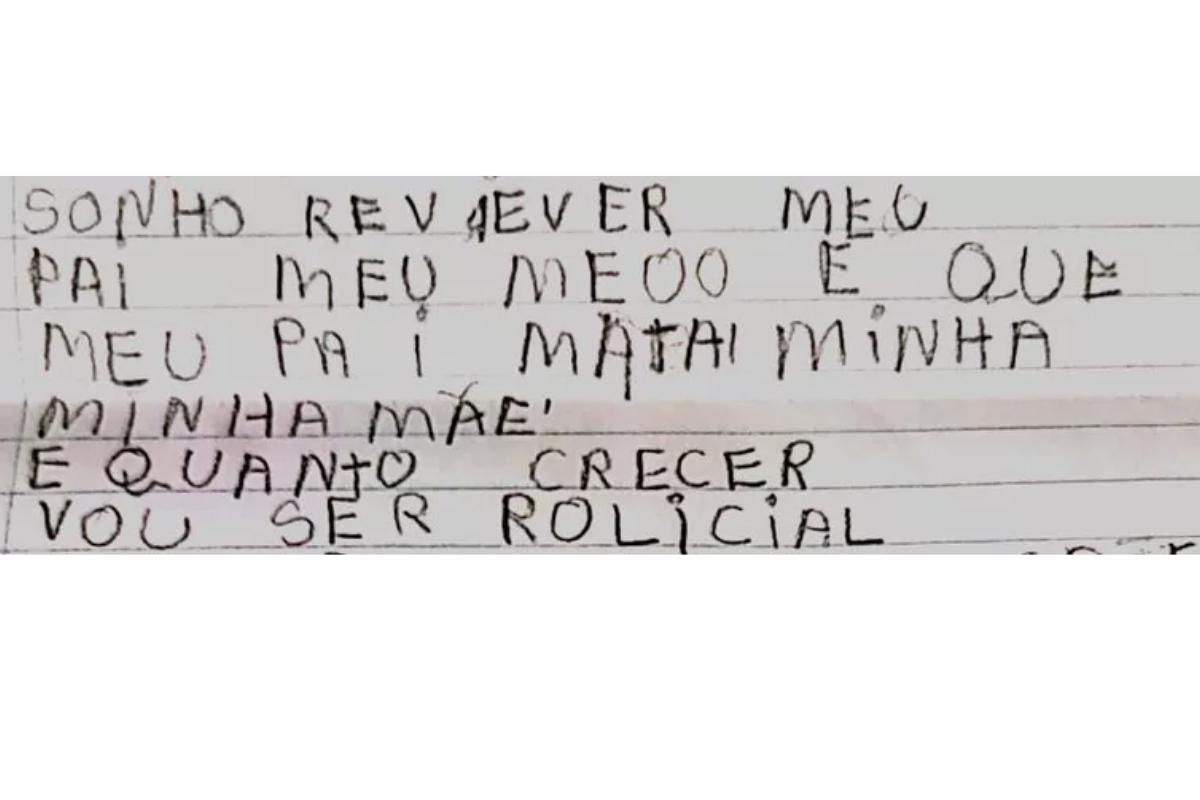 SONHO REVJEVER MEU
PAI MEU MEOO E QUE
MEU PAI MATAI MINHA
MINHA MÃE'
E QUANTO CRECER
VOU SER ROLICIAL